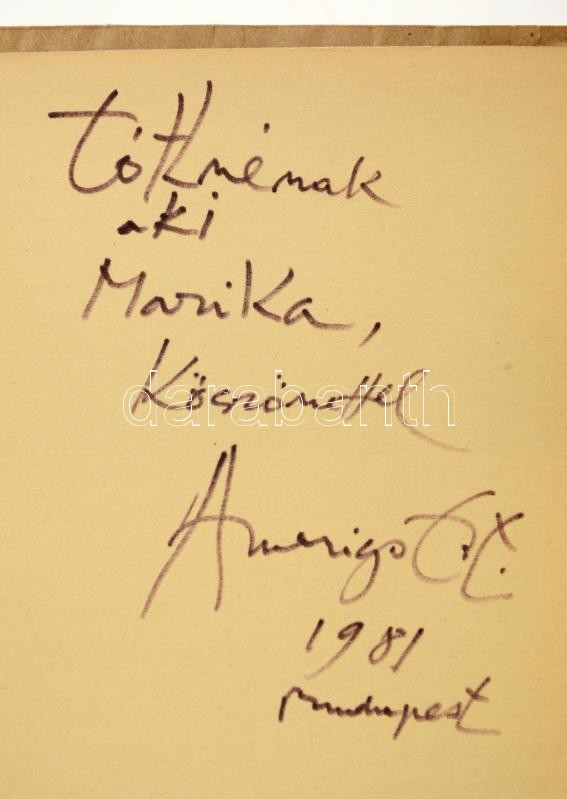 Tóthnénak
aki
Marika,
Köszönettel
darabanth
Amerigo
1981
Budapest